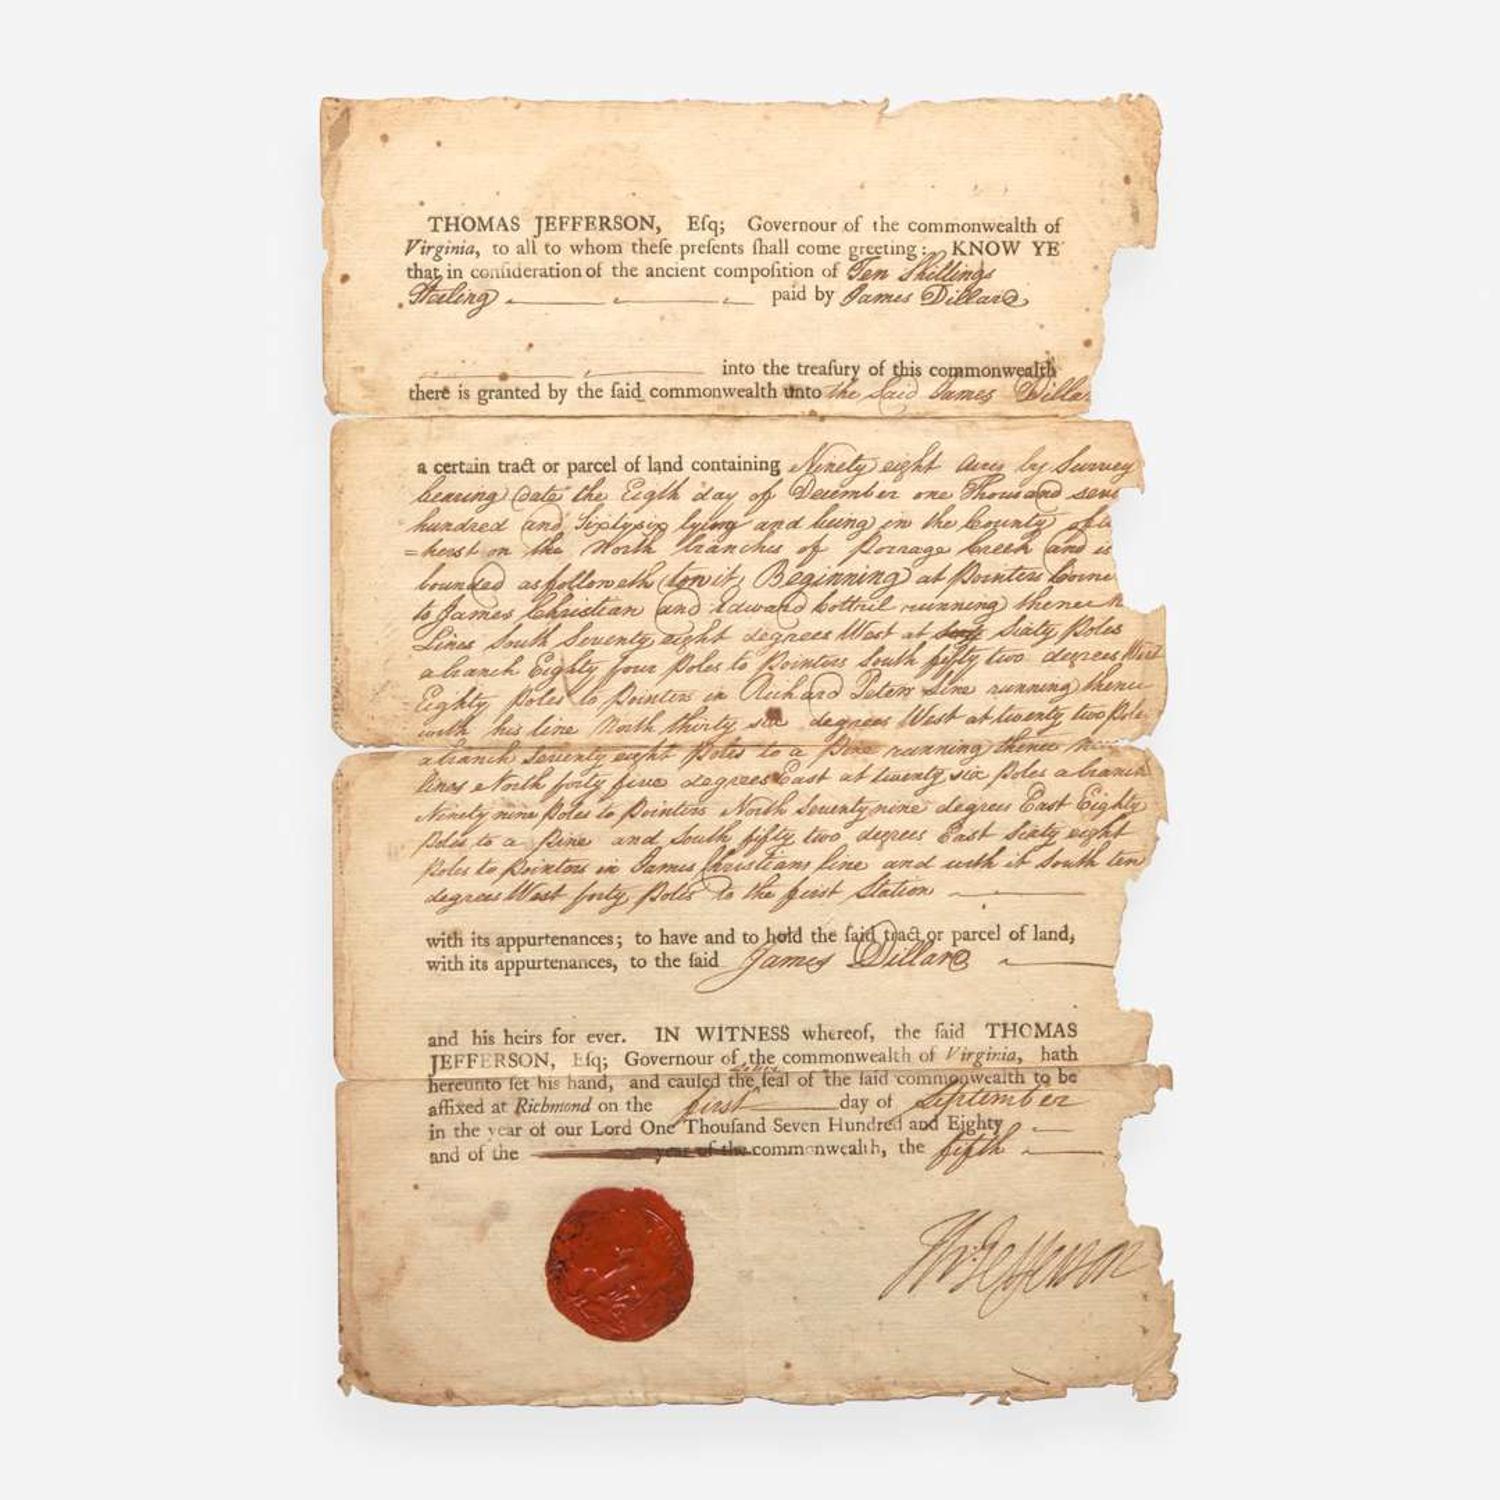 THOMAS JEFFERSON, Eſq; Governour of the commonwealth of
Virginia, to all to whom theſe preſents ſhall come greeting: KNOW YE
that in conſideration of the ancient compoſition of Ten Shillings
Sterling paid by James Dillard
into the treaſury of this commonwealth
there is granted by the ſaid commonwealth unto the Said James Dilla
a certain tract or parcel of land containing Ninety eight Acres by Survey
bearing date the Eigth day of December one Thousand seve
hundred and Sixtysix lying and being in the County of
=herst on the North branches of Porrage Creek and is
bounded as followeth (towit) Beginning at Pointers Corne
to James Christian and Edward Cottril running thence
Lines South Seventy eight degrees West at Sixty Poles
a branch Eighty four Poles to Pointers South fifty two degrees West
Eighty Poles to Pointers in Richard Peters line running thence
with his line North thirty six degrees West at twenty two Pole
a branch Seventy eight Poles to a Pine running thence
lines North forty five degrees East at twenty six Poles a branch
Ninety nine Poles to Pointers North Seventy nine degrees East Eighty
Poles to a Pine and South fifty two degrees East Sixty eight
Poles to Pointers in James Christians line and with it South ten
degrees West forty Poles to the first Station
with its appurtenances; to have and to hold the ſaid tract or parcel of land,
with its appurtenances, to the ſaid James Dillard
and his heirs for ever. IN WITNESS whereof, the ſaid THOMAS
JEFFERSON, Eſq; Governour of the commonwealth of Virginia, hath
hereunto ſet his hand, and cauſed the ſeal of the ſaid commonwealth to be
affixed at Richmond on the first day of September
in the year of our Lord One Thouſand Seven Hundred and Eighty
and of the year of the commonwealth, the fifth
Th: Jefferson